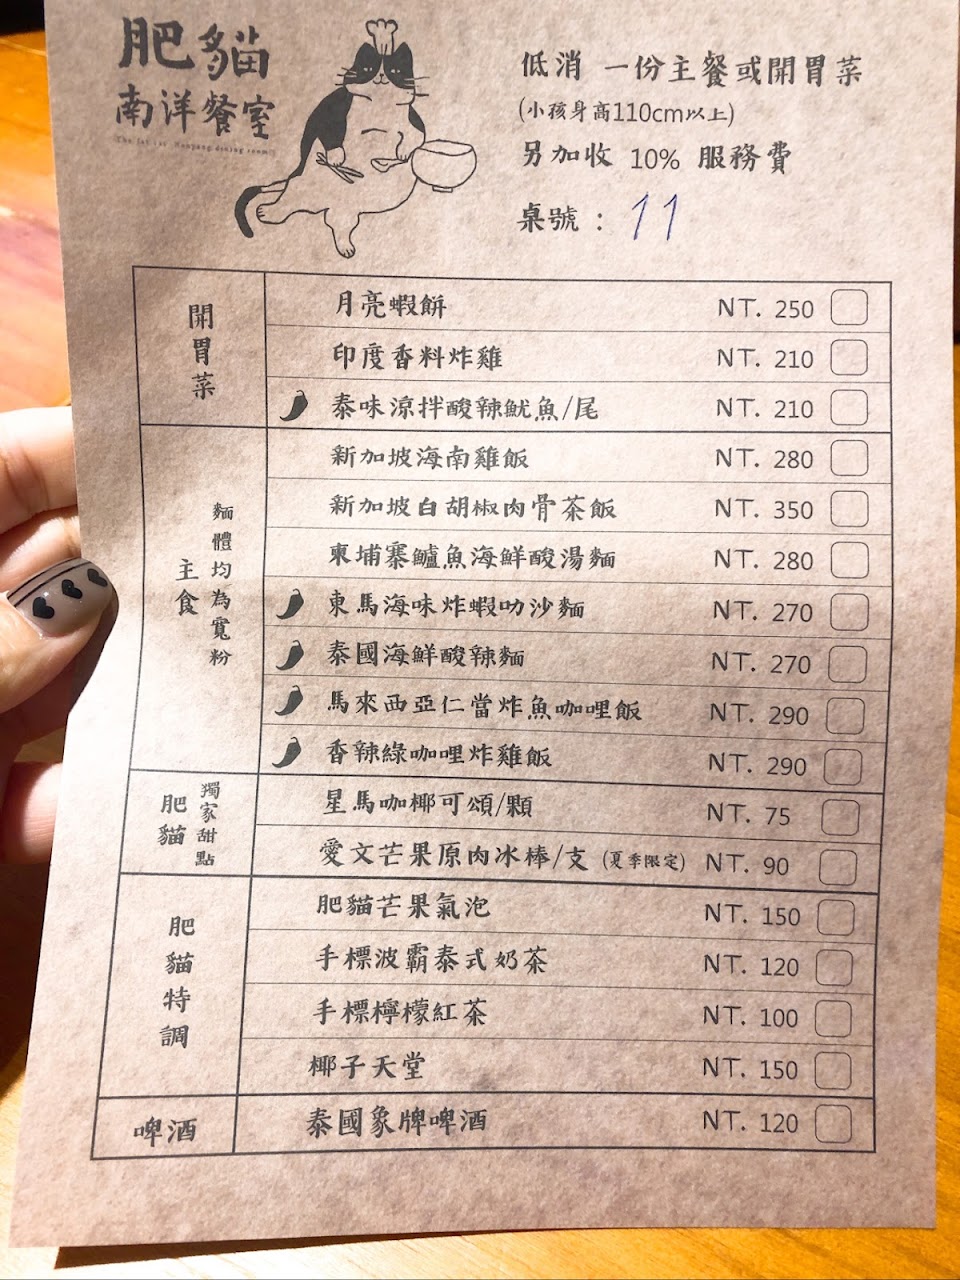 肥貓
南洋餐室
低消 一份主餐或開胃菜
(小孩身高110cm以上)
另加收 10% 服務費
桌號 : 11
開胃菜
月亮蝦餅 NT. 250
印度香料炸雞 NT. 210
泰味涼拌酸辣魷魚/尾 NT. 210
主食
麵體均為寬粉
新加坡海南雞飯 NT. 280
新加坡白胡椒肉骨茶飯 NT. 350
柬埔寨鱸魚海鮮酸湯麵 NT. 280
東馬海味炸蝦叻沙麵 NT. 270
泰國海鮮酸辣麵 NT. 270
馬來西亞仁當炸魚咖哩飯 NT. 290
香辣綠咖哩炸雞飯 NT. 290
肥貓
獨家甜點
星馬咖椰可頌/顆 NT. 75
愛文芒果原肉冰棒/支 (夏季限定) NT. 90
肥貓特調
肥貓芒果氣泡 NT. 150
手標波霸泰式奶茶 NT. 120
手標檸檬紅茶 NT. 100
椰子天堂 NT. 150
啤酒
泰國象牌啤酒 NT. 120